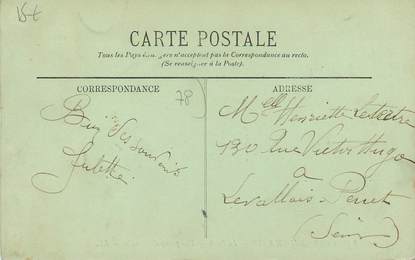 15€
CARTE POSTALE
Tous les Pays étrangers n'acceptent pas la Correspondance au recto.
(Se renseigner à la Poste).
CORRESPONDANCE
78
ADRESSE
des souvenirs
Juliette
Melle Henriette
130 Rue Victor Hugo
à
Levallois-Perret
(Seine)